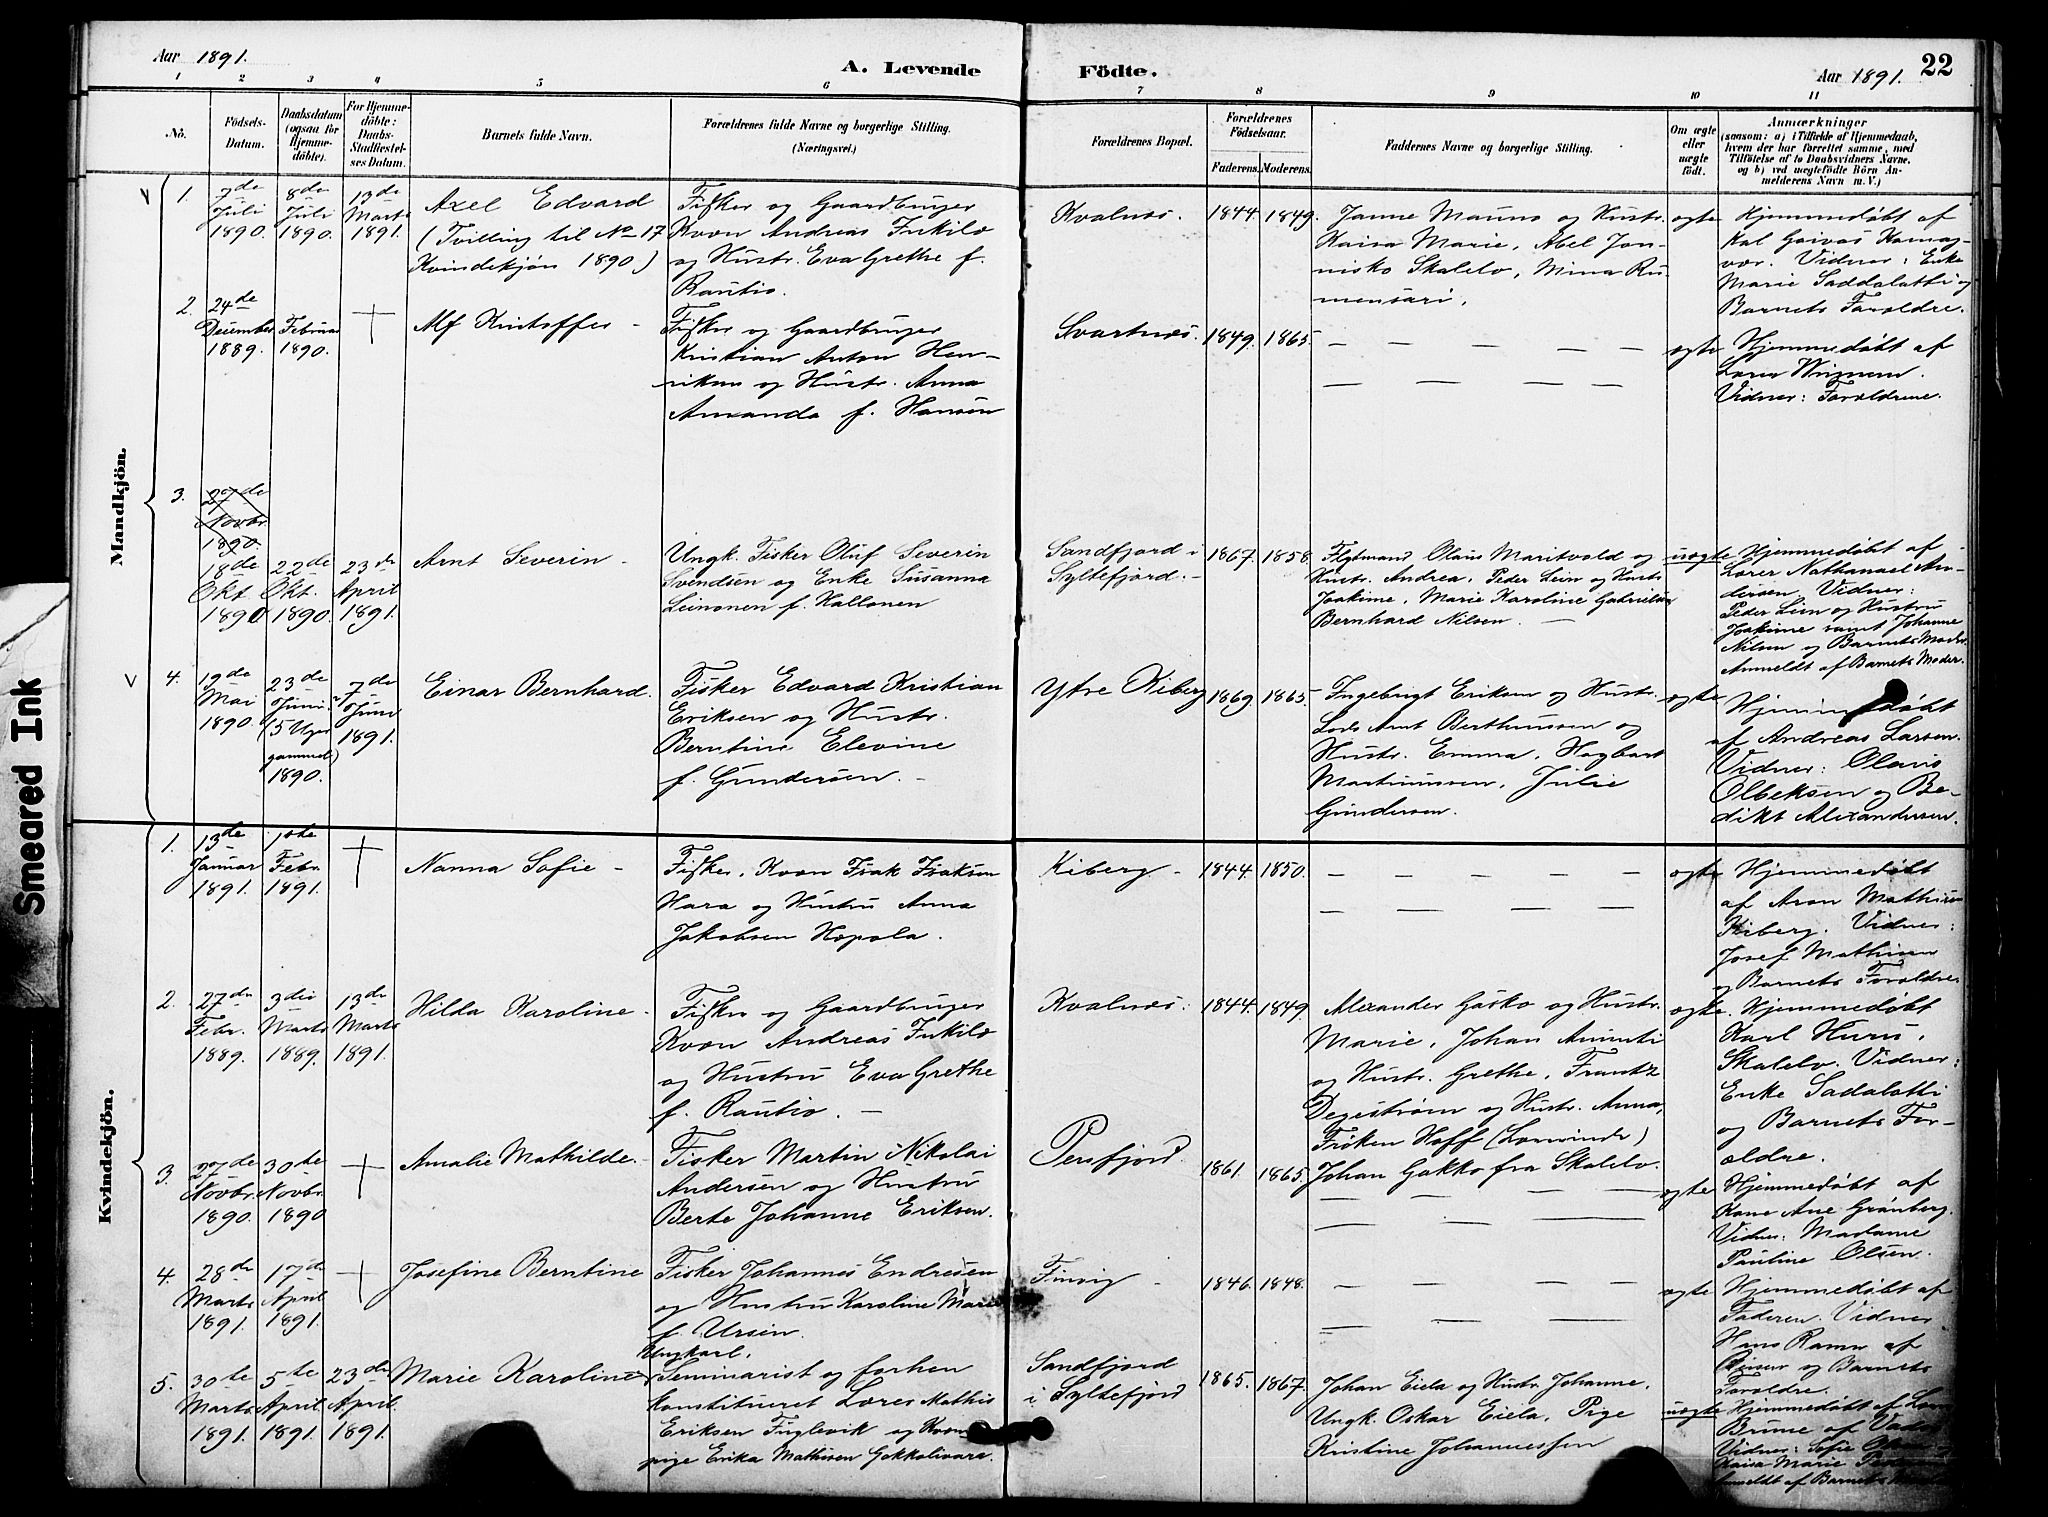 Aar 1891.
A. Levende
Födte.
Aar 1891.
22
1 2 3 4 5 6 7 8 9 10 11
No.
Födsels-
Datum.
Daabsdatum
(ogsaa for
Hjemme-
döbte).
For Hjemme-
döbte:
Daabs-
Stadfæstel-
ses Datum.
Barnets fulde Navn.
Forældrenes fulde Navne og borgerlige Stilling.
(Næringsvei.)
Forældrenes Bopæl.
Forældrenes
Födselsaar.
Faderens. Moderens.
Faddernes Navne og borgerlige Stilling.
Om ægte
eller
uægte
födt.
Anmærkninger
(saasom: a) i Tilfælde af Hjemmedaab,
hvem der har forrettet samme, med
Tilföielse af to Daabsvidners Navne,
og b) ved uægtefödte Börn An-
melderens Navn m. V.)
Mandkjön.
1.
7de
Juli
1890.
8de
Juli
1890.
13de
Marts
1891.
Axel Edvard
(Tvilling til No 17
Kvindekjön 1890)
Fisker og Gaardbruger
Kvæn Andreas Inkilæ
og Hustr. Eva Grethe f.
Rautio.
Kvalnæs.
1844. 1849.
Janne Mauno og Hustr.
Kaisa Marie, Abel Jon-
nisko Skalelv, Mina
ægte
Hjemmedøbt af
Vidner: Enke
Marie Saddalatti og
Barnets Forældre.
2.
24de
December
1889.
Februar
1890.
Alf Kristoffer -
Fisker og Gaardbruger
Kristian Anton Hen-
riksen og Hustr. Anna
Amanda f. Hansen
Svartnæs.
1849. 1865.
ægte
Hjemmedøbt af
Lærer
Vidner: Forældrene.
3.
27de
Novbr.
1890.
18de
Okt.
1890
22de
Okt.
1890.
23de
April
1891.
Arnt Severin -
Ungk. Fisker Oluf Severin
Svendsen og Enke Susanna
Leinonen f. Kallonen
Sandfjord i
Syltefjord. -
1867. 1858.
Flytmand Olaus Maritvold og
Hustr. Andrea, Peder Lein og Hustr.
Joakime, Marie Karoline Gabrielsen
Bernhard Nilsen. -
uægte
Hjemmedøbt af
Lærer Nathanael An-
dersen. Vidner:
Peder Lien og Hustru
Joakime samt Johanne
Nilsen og Barnets Moder.
Anmeldt af Barnets Moder.
4.
19de
Mai
1890.
23de
Juni
(5 Uger
gammel)
1890.
7de
Juni
1891.
Einar Bernhard.
Fisker Edvard Kristian
Eriksen og Hustr.
Berntine Elevine
f. Gundersen. -
Ytre Kiberg
1869. 1865.
Ingebrigt Eriksen og Hustr.
Lods Arnt Bertheussen og
Hustr. Emma, Hagbart
Martinussen, Julie
Gundersen.
ægte
Hjemmedøbt
af Andreas Larsen.
Vidner: Olaus
Olbeksen og Be-
dikt Alexandersen.
Kvindekjön.
1.
13de
Januar
1891.
1ste
Febr.
1891.
Nanna Sofie -
Fisker, Kvæn Isak Isaksen
Hara og Hustru Anna
Jakobsen Hæpola.
Kiberg -
1844. 1850.
ægte
Hjemmedøbt
af Aron Mathisen
Kiberg. Vidner:
Josef Mathisen
og Barnets Forældre
2.
27de
Febr.
1889.
3die
Marts
1889.
13de
Marts
1891.
Hilda Karoline -
Fisker og Gaardbruger
Kvæn Andreas Inkilæ
og Hustru Eva Grethe
f. Rautio. -
Kvalnæs:
1844. 1849.
Alexander Gasko og Hustr.
Marie, Johan Ammuti
og Hustr. Grethe, Frantz
Degeström og Hustr. Anna,
Frøken Hoff (Lærerinde)
Johan Gakko fra Skalelv.
ægte.
Hjemmedøbt
Karl Huru,
Skalelv. Vidner:
Enke Sadalatti
og Barnets For-
ældre.
3.
27de
Novbr.
1890.
30te
Novbr.
1890
Amalie Mathilde. -
Fisker Martin Nikolai
Andersen og Hustru
Berte Johanne Eriksen.
Persfjord.
1861. 1865.
ægte
Hjemmedøbt af
Kone Ane Grønberg.
Vidner: Madame
Pauline Olsen.
4.
28de
Marts
1891.
17de
April
1891.
Josefine Berntine
Fisker Johannes Endresen
og Hustru Karoline Marie
f. Ursin.
Finvig -
1846. 1848.
ægte
Hjemmedøbt af
Faderen. Vidner
Hans Ramn af
og Barnets
Forældre.
5.
30te
Marts
1891.
5te
April
1891.
23de
April.
1891.
Marie Karoline
Ungkarl,
Seminarist og forhen
konstitueret Lærer Mathis
Eriksen Fuglevik og Kvæn
pige Erika Mathisen Gokkolivara.
Sandfjord
i Syltefjord
1865. 1867.
Johan Eiela og Hustr. Johanne,
Ungk. Oskar Eiela, Pige
Kristine Johannessen
uægte
Hjemmedøbt af
Brune af
Vidner: Sofie
Kaisa Marie
Anmeldt af Barnets
Smeared Ink